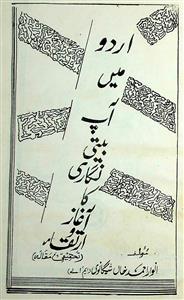 اردو
میں
آپ
بیتی
نگاری
کا
آغاز
و
ارتقاء
(تحقیقی مقالہ)
مؤلف
انوار احمد خاں
(ایم اے)